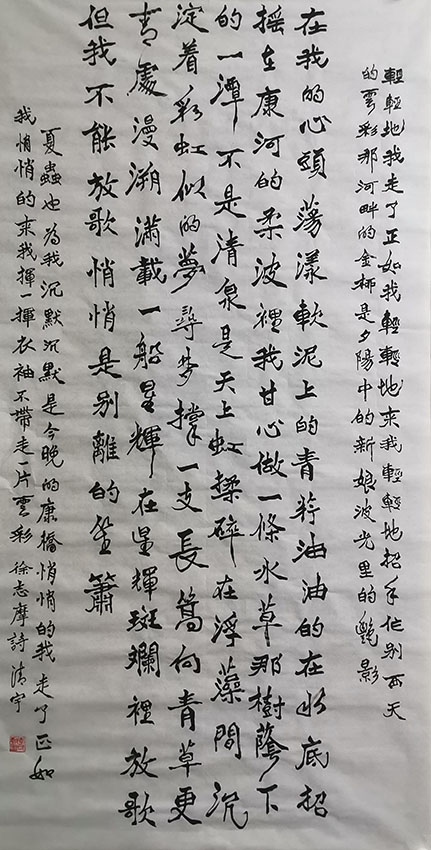 輕輕地我走了正如我輕輕地來我輕輕地招手作别西天
的雲彩那河畔的金柳是夕陽中的新娘波光里的艷影
在我的心頭蕩漾軟泥上的青荇油油的在水底招
搖在康河的柔波裡我甘心做一條水草那樹蔭下
的一潭不是清泉是天上虹揉碎在浮藻間沉
淀着彩虹似的夢尋夢撐一支長篙向青草更
青處漫溯滿載一船星輝在星輝斑斕裡放歌
但我不能放歌悄悄是别離的笙簫
夏蟲也為我沉默沉默是今晚的康橋悄悄的我走了正如
我悄悄的來我揮一揮衣袖不帶走一片雲彩 徐志摩詩 清宇